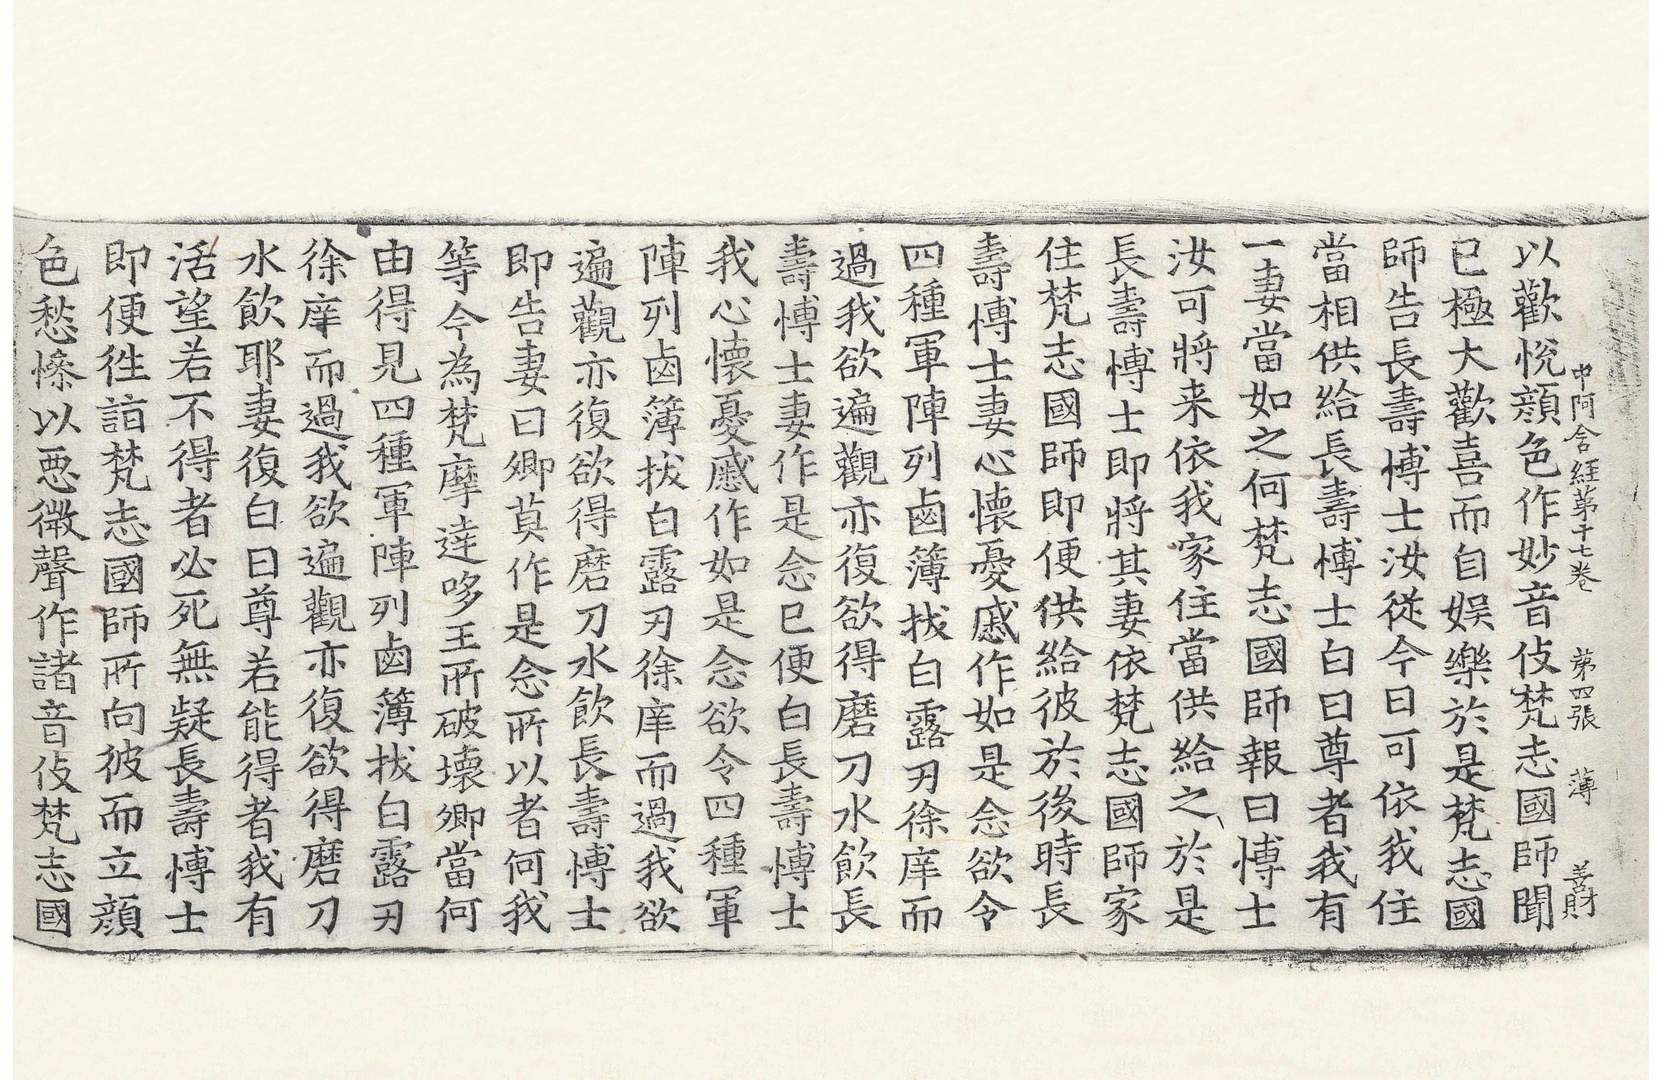 中阿含経第十七卷 第四張 薄 善財
以歡悅顔色作妙音伎梵志國師聞
已極大歡喜而自娱樂於是梵志國
師告長壽愽士汝從今日可依我住
當相供給長壽愽士白曰尊者我有
一妻當如之何梵志國師報曰愽士
汝可將来依我家住當供給之於是
長壽愽士即將其妻依梵志國師家
住梵志國師即便供給彼於後時長
壽愽士妻心懷憂慼作如是念欲令
四種軍陣列鹵簿拔白露刃徐庠而
過我欲遍觀亦復欲得磨刀水飲長
壽愽士妻作是念已便白長壽愽士
我心懷憂慼作如是念欲令四種軍
陣列鹵簿拔白露刃徐庠而過我欲
遍觀亦復欲得磨刀水飲長壽愽士
即告妻曰卿莫作是念所以者何我
等今為梵摩達哆王所破壞卿當何
由得見四種軍陣列鹵簿拔白露刃
徐庠而過我欲遍觀亦復欲得磨刀
水飲耶妻復白曰尊若能得者我有
活望若不得者必死無疑長壽愽士
即便徃詣梵志國師所向彼而立顔
色愁慘以惡微聲作諸音伎梵志國